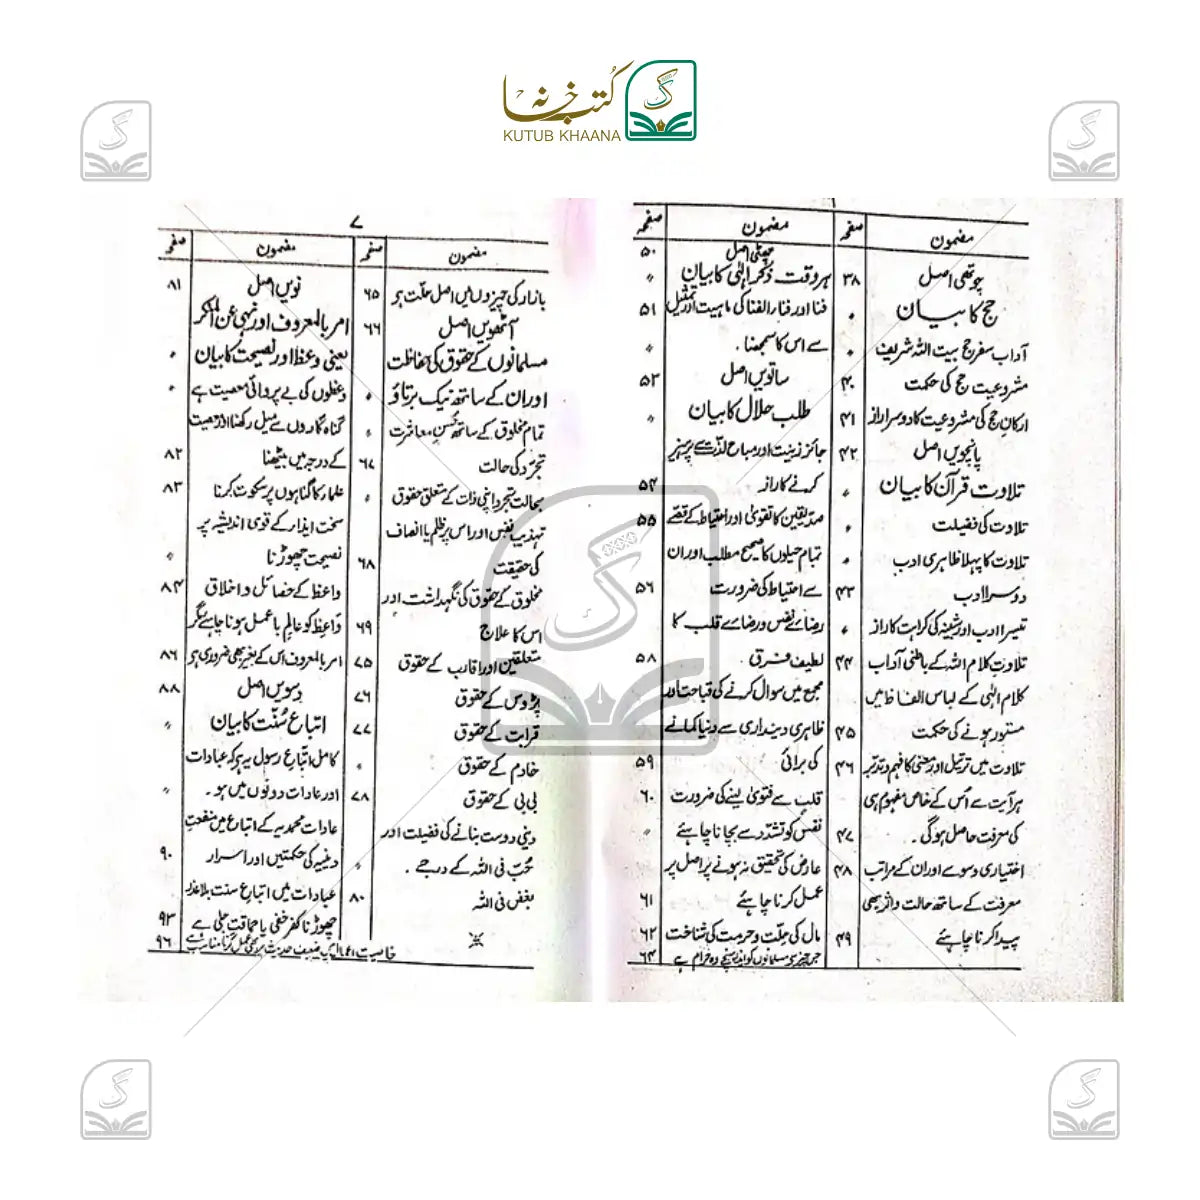 کتب خانہ
KUTUB KHAANA
مضمون صفحہ مضمون صفحہ
چوتھی اصل ۳۸
حج کا بیان 〃
آداب سفر حج بیت اللہ شریف 〃
مشروعیت حج کی حکمت ۴۰
ارکانِ حج کی مشروعیت کا دوسرا راز ۴۱
پانچویں اصل ۴۲
تلاوت قرآن کا بیان 〃
تلاوت کی فضیلت 〃
تلاوت کا پہلا ظاہری ادب 〃
دوسرا ادب ۴۳
تیسرا ادب اور شبینہ کی کراہت کا راز 〃
تلاوتِ کلام اللہ کے باطنی آداب ۴۴
کلام الٰہی کے لباس الفاظ میں
مستور ہونے کی حکمت ۴۵
تلاوت میں ترتیل اور معنی کا فہم و تدبر ۴۶
ہر آیت سے اُس کے خاص مفہوم ہی
کی معرفت حاصل ہوگی۔ ۴۷
اختیاری وسوسے اور ان کے مراتب ۴۸
معرفت کے ساتھ حالت و اثر بھی
پیدا کرنا چاہئے ۴۹
چھٹی اصل ۵۰
ہر وقت ذکر الٰہی کا بیان 〃
فنا اور فناء الفنا کی ماہیت اور تمثیل ۵۱
سے اس کا سمجھنا۔ 〃
ساتویں اصل ۵۳
طلب حلال کا بیان 〃
جائز زینت اور مباح لذت سے پرہیز
کرنے کا راز ۵۴
صدیقین کا تقویٰ اور احتیاط کے قصے ۵۵
تمام حیلوں کا صحیح مطلب اور ان
سے احتیاط کی ضرورت ۵۶
رضائے نفس و رضائے قلب کا
لطیف فرق۔ ۵۸
مجمع میں سوال کرنے کی قباحت اور
ظاہری دینداری سے دنیا کمانے
کی برائی ۵۹
قلب سے فتویٰ لینے کی ضرورت ۶۰
نفس کو تشدد سے بچانا چاہئے 〃
عارض کی تحقیق نہ ہونے پر اصل پر
عمل کرنا چاہئے ۶۱
مال کی حلت و حرمت کی شناخت ۶۲
جس چیز سے مسلمانوں کو ایذا پہنچے وہ حرام ہے ۶۴
۷
مضمون صفحہ مضمون صفحہ
بازار کی چیزوں میں اصل حلت ہے ۶۵
آٹھویں اصل ۶۶
مسلمانوں کے حقوق کی حفاظت
اور ان کے ساتھ نیک برتاؤ 〃
تمام مخلوق کے ساتھ حُسنِ معاشرت 〃
تجرد کی حالت ۶۷
بحالت تجرد اپنی ذات کے متعلق حقوق 〃
تہذیب نفس اور اس پر ظلم یا انصاف
کی حقیقت ۶۸
مخلوق کے حقوق کی نگہداشت اور
اس کا علاج ۶۹
متعلقین اور اقارب کے حقوق ۷۵
پڑوس کے حقوق ۷۶
قرابت کے حقوق ۷۷
خادم کے حقوق 〃
بی بی کے حقوق ۷۸
دینی دوست بنانے کی فضیلت اور
حُب فی اللہ کے درجے۔ 〃
بغض فی اللہ ۸۰
نویں اصل ۸۱
امر بالمعروف اور نہی عن المنکر
یعنی وعظ اور نصیحت کا بیان 〃
وعظوں کی بے پروائی معصیت ہے 〃
گناہ گاروں سے میل رکھنا اور معصیت
کے درجہ میں بیٹھنا ۸۲
علماء کا گناہوں پر سکوت کرنا ۸۳
سخت ایذا کے قوی اندیشہ پر
نصیحت چھوڑنا 〃
واعظ کے خصائل و اخلاق ۸۴
واعظ کو عالم با عمل ہونا چاہئے مگر
امر بالمعروف اس کے بغیر بھی ضروری ہے ۸۶
دسویں اصل ۸۸
اتباع سُنت کا بیان 〃
کامل اتباعِ رسول یہ ہے کہ عبادات
اور عادات دونوں میں ہو۔ 〃
عادات محمدیہ کے اتباع میں منفعت
دینیہ کی حکمتیں اور اسرار ۹۰
عبادات میں اتباعِ سنت بلا عذر
چھوڑنا کفر خفی یا حماقت جلی ہے ۹۳
خاصیت اعمال میں ضعیف حدیث پر بھی عمل کرنا مناسب ہے ۹۶